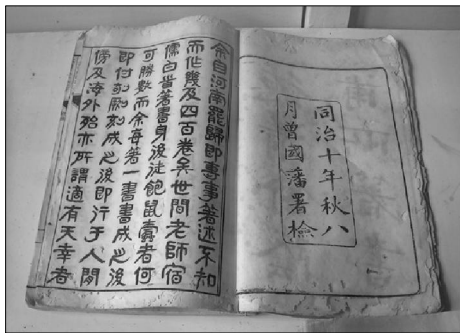 同治十年秋八
月曾國藩署檢
余自河南罷歸即專事著述不知
而作幾及四百卷矣世間老師宿
儒白首著書身後徒飽鼠蠹者何
可勝數而余每著一書書成之後
即付剞劂刻成之後即行于人間
傍及海外殆亦所謂適有天幸者